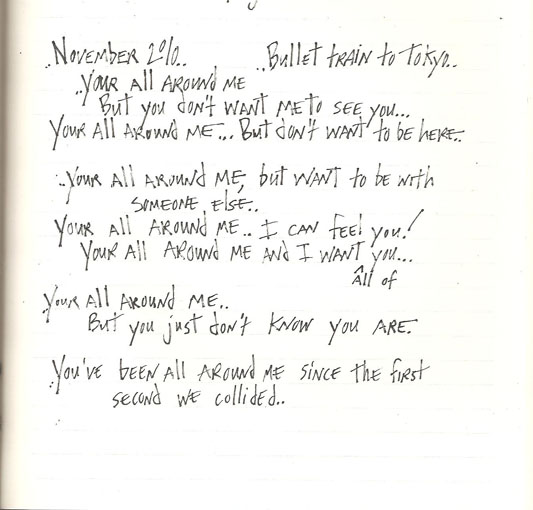 ..November 2010.. ..Bullet train to Tokyo..
..Your all around me
But you don't want me to see you...
Your all around me... But don't want to be here..
..Your all around me, but want to be with
someone else..
Your all around me.. I can feel you!
Your all around me and I want ^ you...
All of
Your all around me..
But you just don't know you are.
You've been all around me since the first
second we collided..